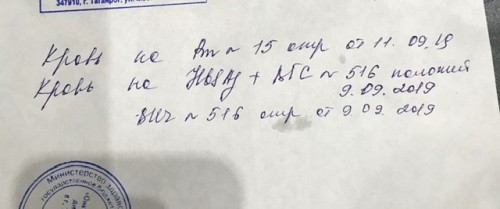 347910, г. Таганрог, ул.
Кровь на Rm № 15 отр от 11.09.19
Кровь на HBSAg + ВГС № 516 полож
9.09.2019
ВИЧ № 516 отр от 9.09.2019
Министерство здраво
государственное бюджет